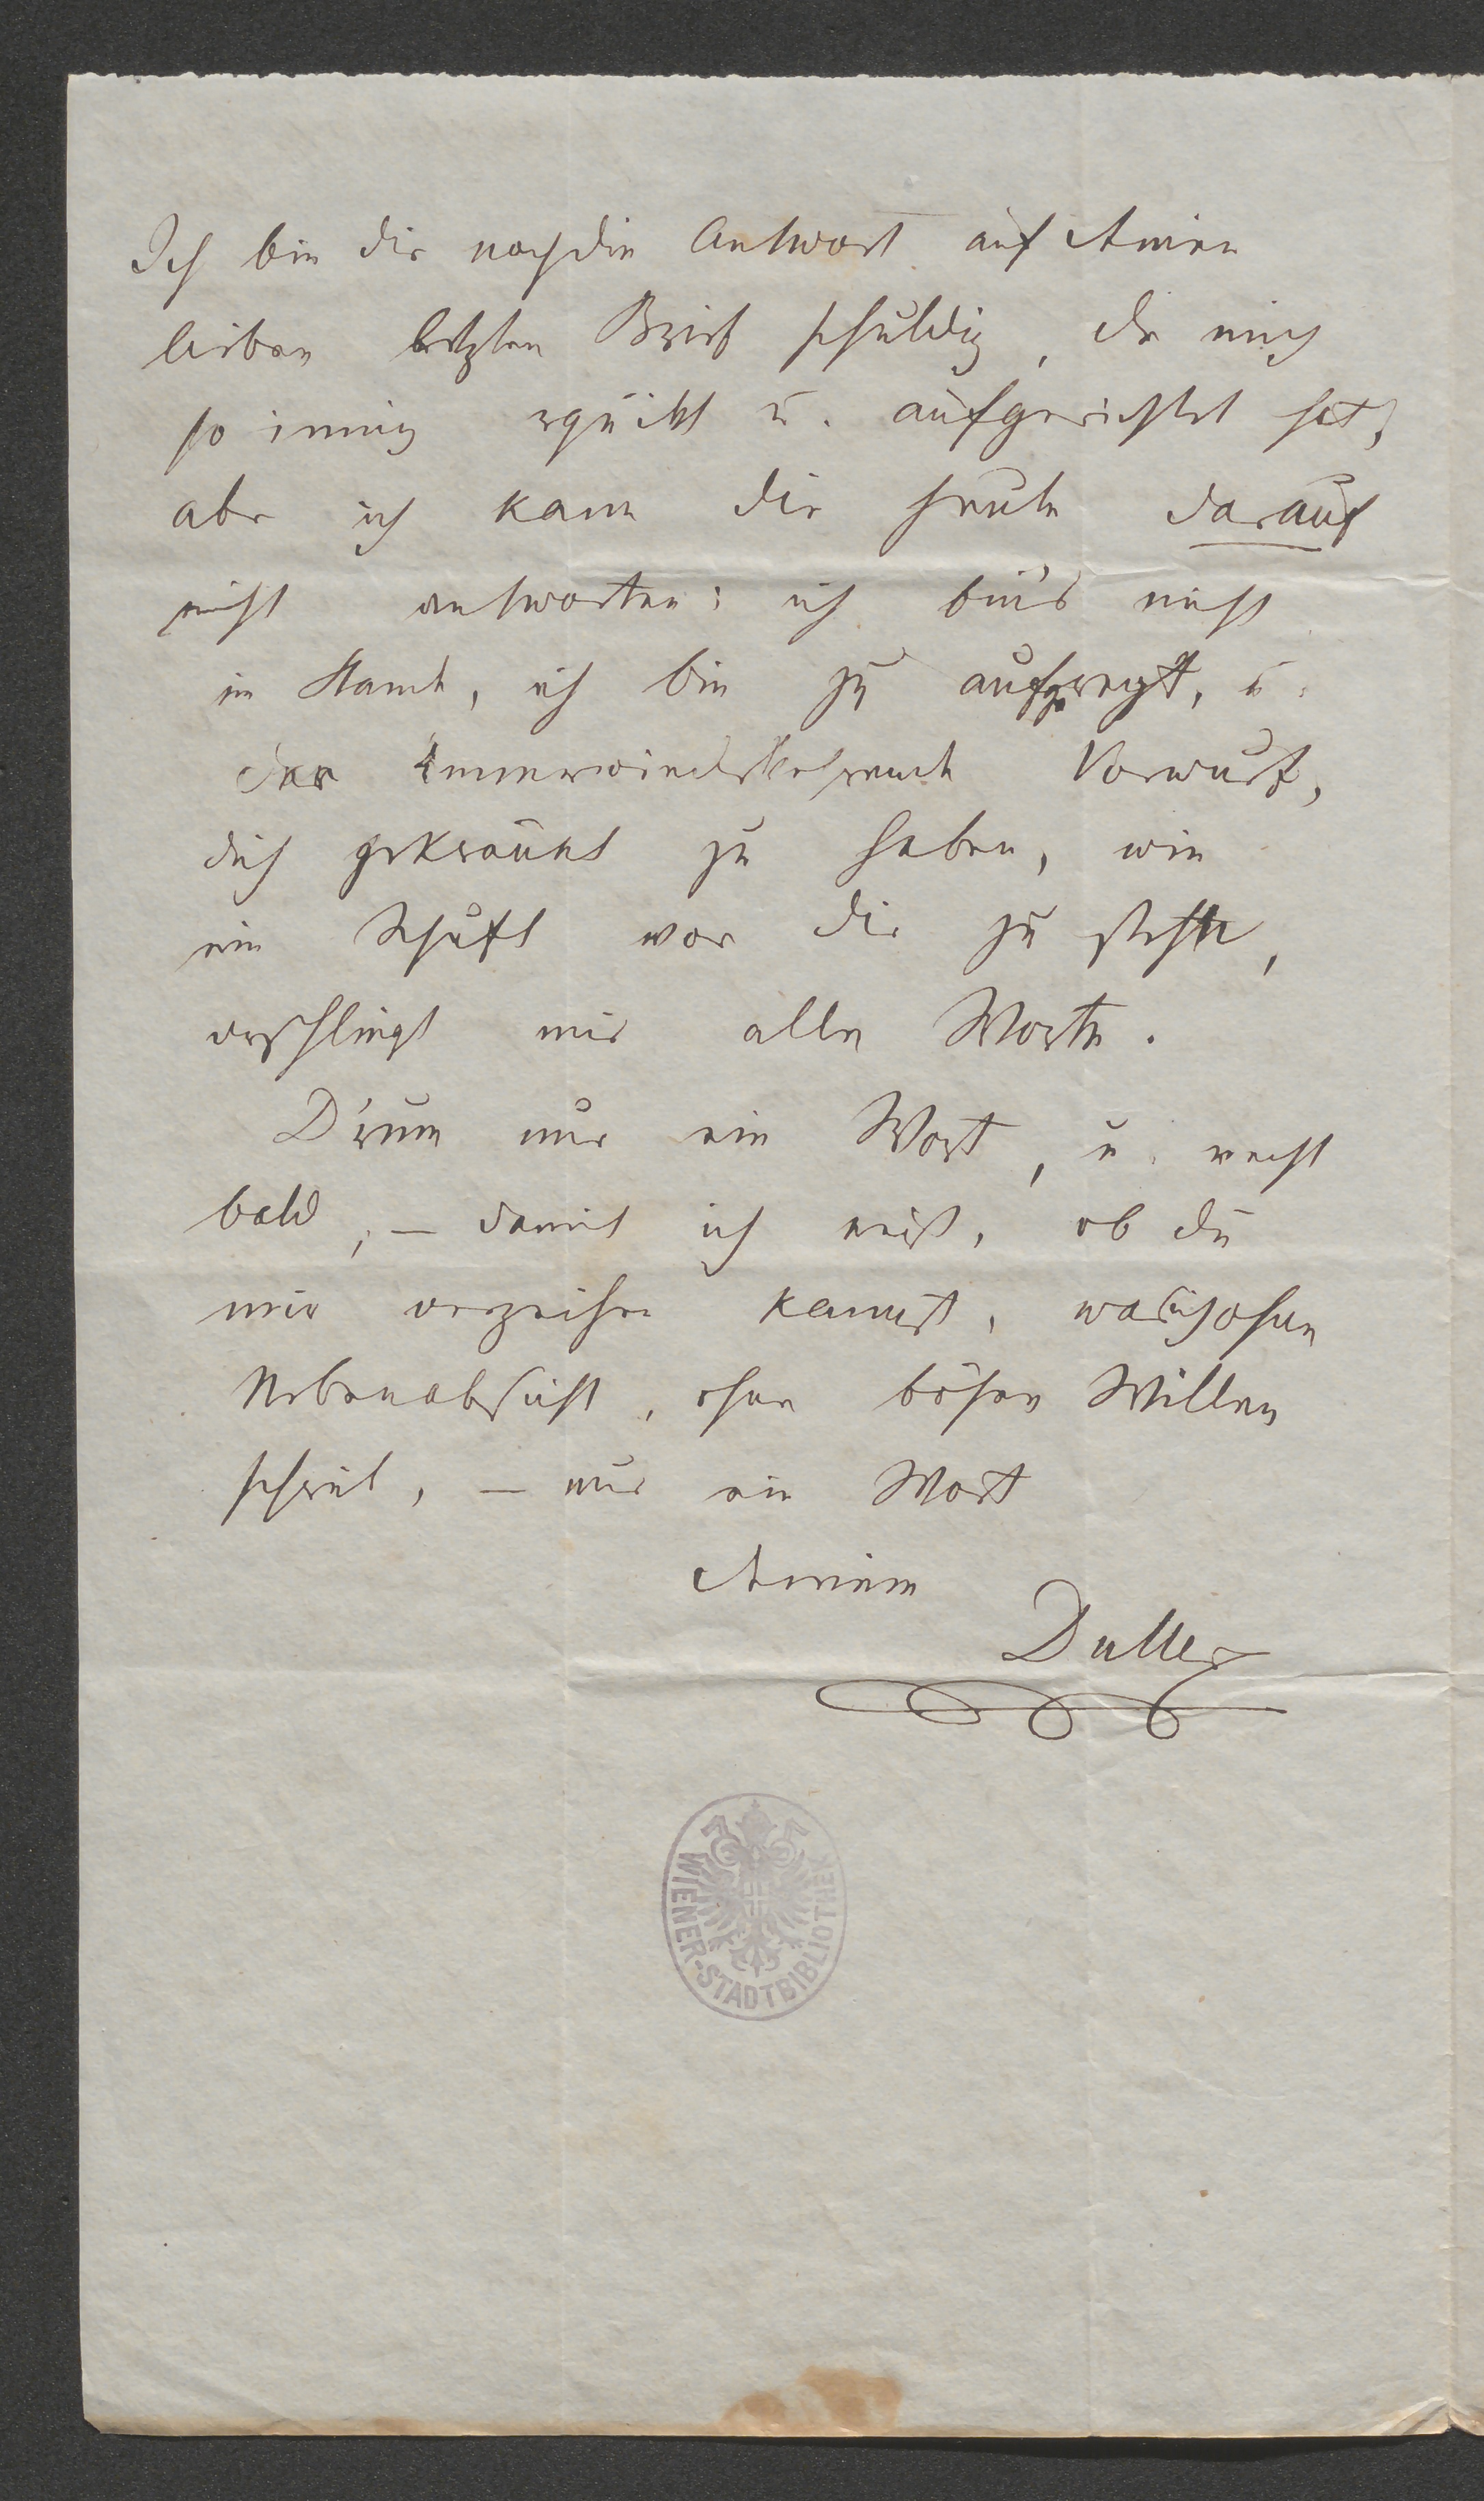 Ich bin dir noch die Antwort auf Deinen
lieben letzten Brief schuldig, der mich
so innig erquickt u. aufgerichtet hat,
aber ich kann dir heute darauf
nicht antworten; ich bin's nicht
im Stande, ich bin zu aufgeregt, u.
der immerwiederkehrende Vorwurf,
dich gekränkt zu haben, wie
ein Schuft vor dir zu stehen,
verschlingt mir alle Worte.
D'rum nur ein Wort, u. recht
bald, – damit ich weiß, ob du
mir verzeihen kannst, was ich ohne
Nebenabsicht, ohne bösen Willen
schrieb, – nur ein Wort
Deinem
Duller
WIENER-STADTBIBLIOTHEK